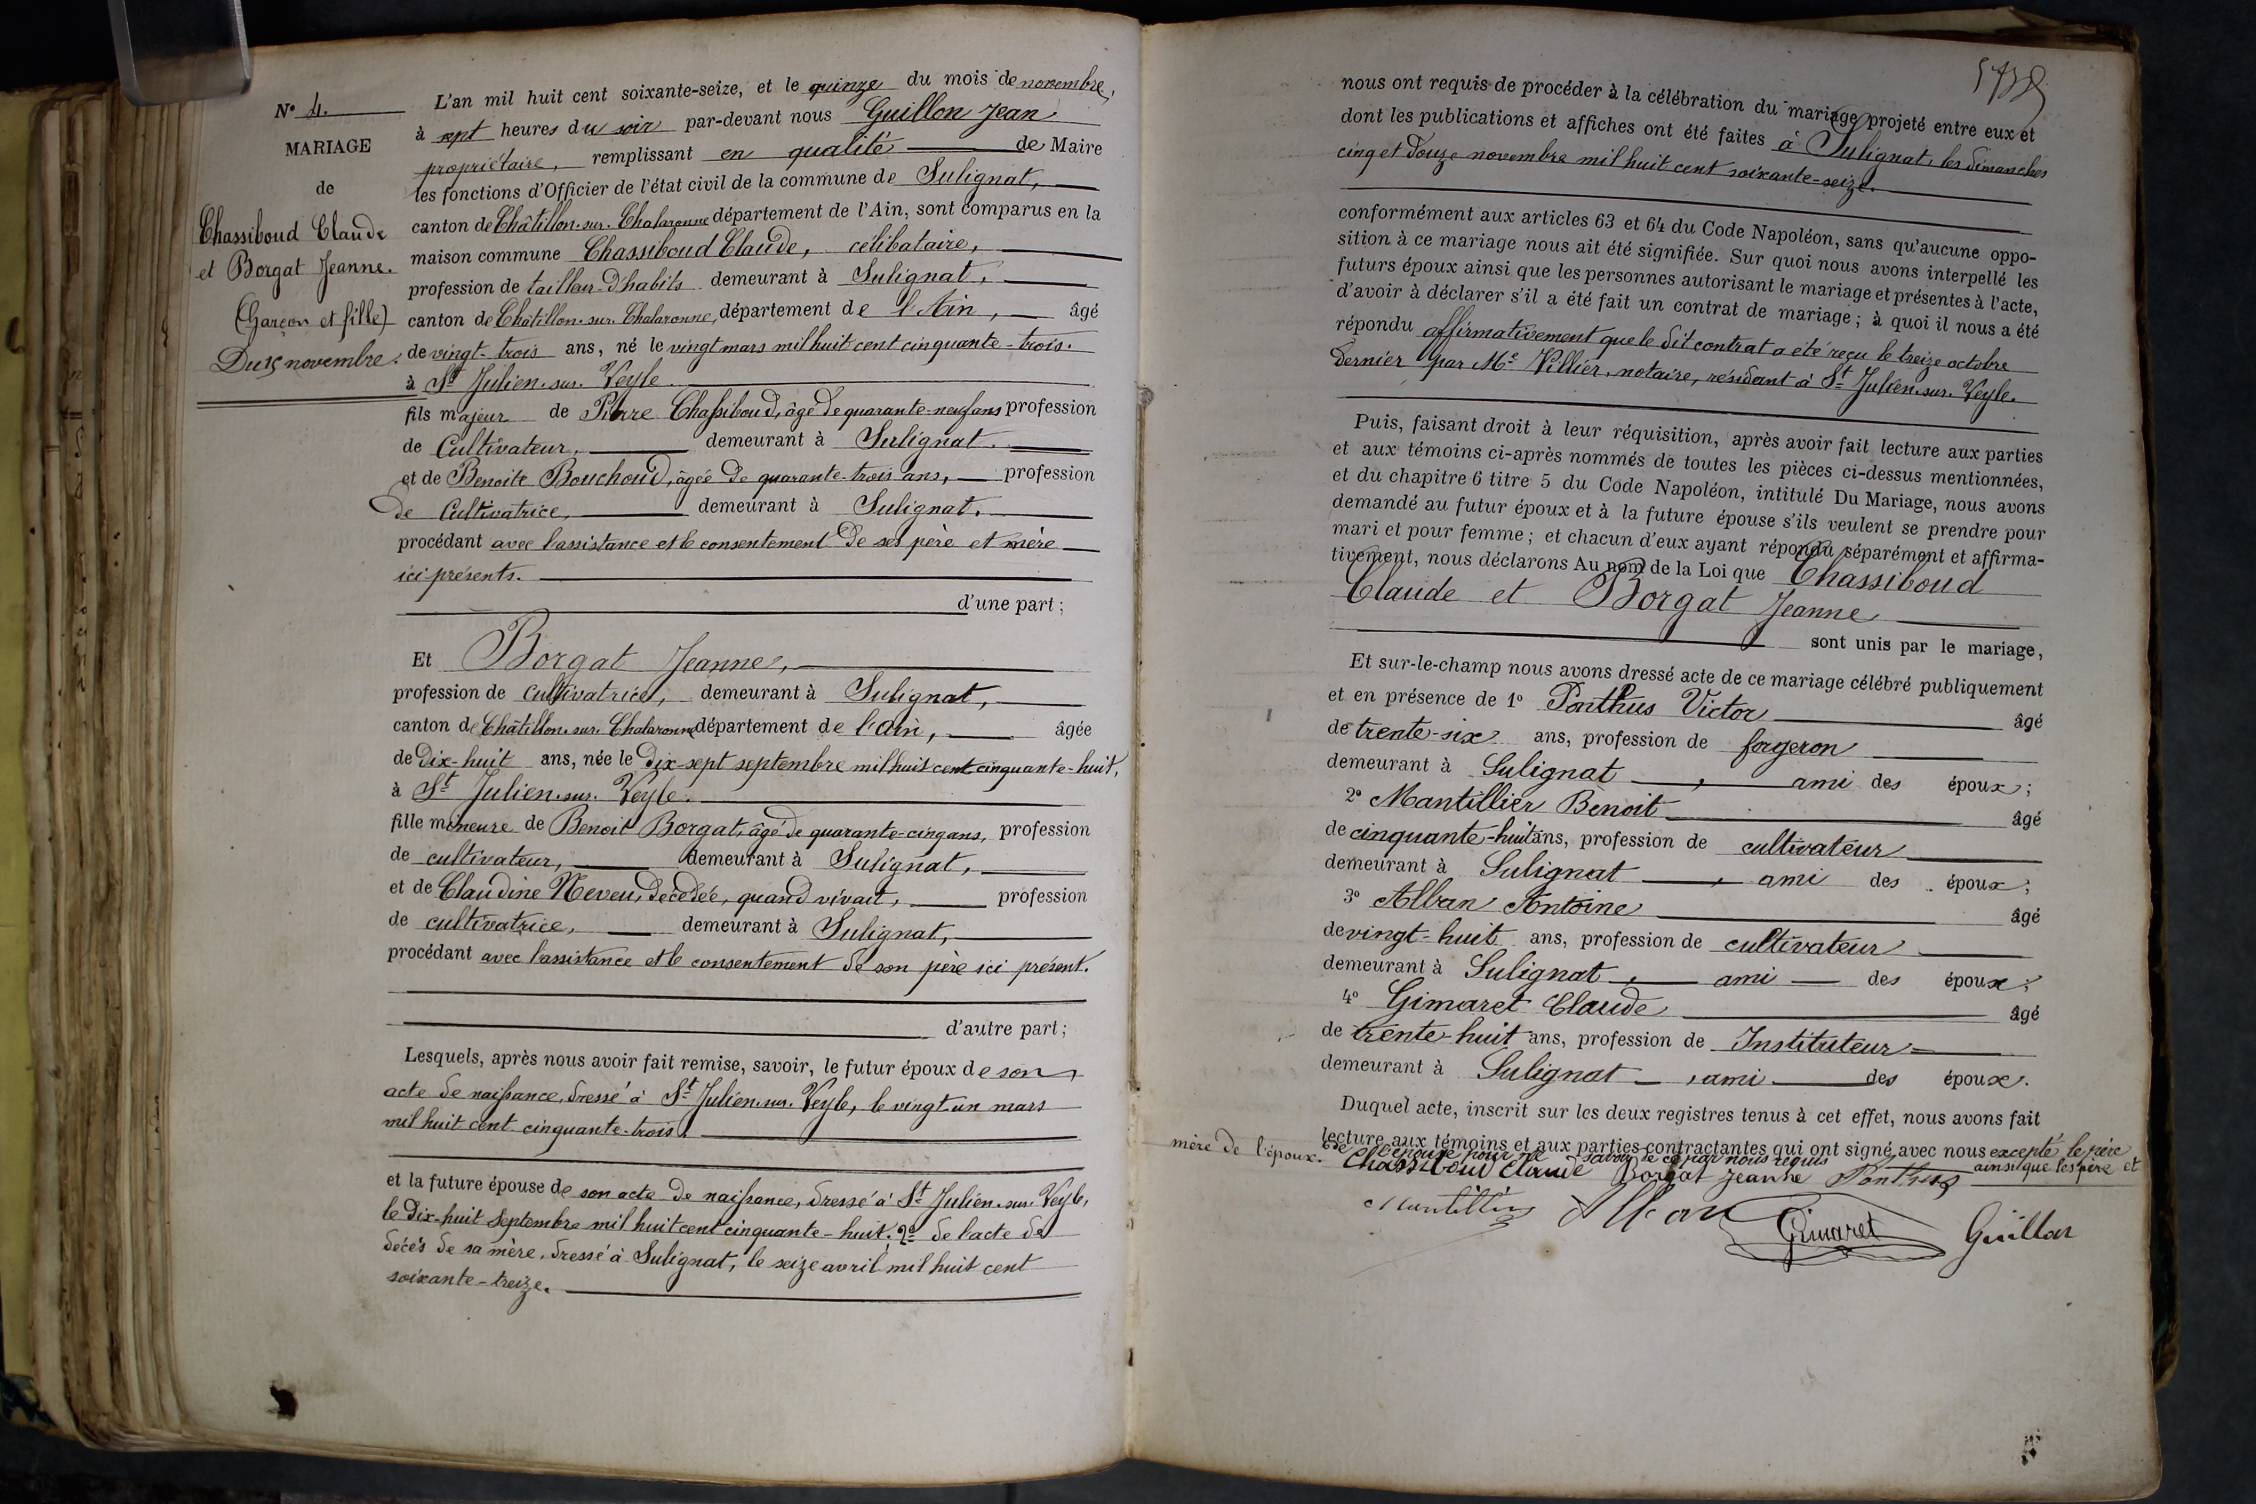 N° 4.
MARIAGE
de
Chassiboud Claude
et Borgat Jeanne.
(Garçon et fille)
Du 15 novembre.
L'an mil huit cent soixante-seize, et le quinze du mois de novembre,
à sept heures du soir par-devant nous Guillon Jean
propriétaire, remplissant en qualité de Maire
les fonctions d'Officier de l'état civil de la commune de Sulignat,
canton de Châtillon-sur-Chalaronne département de l'Ain, sont comparus en la
maison commune Chassiboud Claude, célibataire,
profession de tailleur d'habits demeurant à Sulignat,
canton de Châtillon-sur-Chalaronne, département de l'Ain, âgé
de vingt-trois ans, né le vingt mars mil huit cent cinquante-trois.
à St Julien-sur-Veyle
fils majeur de Pierre Chassiboud, âgé de quarante-neuf ans profession
de Cultivateur, demeurant à Sulignat.
et de Benoite Bouchoud, âgée de quarante-trois ans, profession
de Cultivatrice, demeurant à Sulignat.
procédant avec l'assistance et le consentement de ses père et mère
ici présents.
d'une part;
Et Borgat Jeanne,
profession de cultivatrice, demeurant à Sulignat,
canton de Châtillon-sur-Chalaronne département de l'ain, âgée
de dix-huit ans, née le dix-sept septembre mil huit cent cinquante-huit,
à St Julien-sur-Veyle.
fille mineure de Benoit Borgat, âgé de quarante-cinq ans, profession
de cultivateur, demeurant à Sulignat,
et de Claudine Neveu, décédée, quand vivait, profession
de cultivatrice, demeurant à Sulignat,
procédant avec l'assistance et le consentement de son père ici présent.
d'autre part;
Lesquels, après nous avoir fait remise, savoir, le futur époux de son
acte de naissance, dressé à St Julien-sur-Veyle, le vingt-un mars
mil huit cent cinquante-trois.
et la future épouse de son acte de naissance, dressé à St Julien-sur-Veyle,
le dix-huit septembre mil huit cent cinquante-huit. 2° de l'acte de
décès de sa mère, dressé à Sulignat, le seize avril mil huit cent
soixante-treize.
nous ont requis de procéder à la célébration du mariage projeté entre eux et
dont les publications et affiches ont été faites à Sulignat, les dimanches
cinq et douze novembre mil huit cent soixante-seize.
conformément aux articles 63 et 64 du Code Napoléon, sans qu'aucune oppo-
sition à ce mariage nous ait été signifiée. Sur quoi nous avons interpellé les
futurs époux ainsi que les personnes autorisant le mariage et présentes à l'acte,
d'avoir à déclarer s'il a été fait un contrat de mariage; à quoi il nous a été
répondu affirmativement que le dit contrat a été reçu le treize octobre
dernier par Me Villier, notaire, résidant à St Julien-sur-Veyle.
Puis, faisant droit à leur réquisition, après avoir fait lecture aux parties
et aux témoins ci-après nommés de toutes les pièces ci-dessus mentionnées,
et du chapitre 6 titre 5 du Code Napoléon, intitulé Du Mariage, nous avons
demandé au futur époux et à la future épouse s'ils veulent se prendre pour
mari et pour femme; et chacun d'eux ayant répondu séparément et affirma-
tivement, nous déclarons Au nom de la Loi que Chassiboud
Claude et Borgat Jeanne
sont unis par le mariage,
Et sur-le-champ nous avons dressé acte de ce mariage célébré publiquement
et en présence de 1° Ponthus Victor âgé
de trente-six ans, profession de forgeron
demeurant à Sulignat, ami des époux;
2° Mantillier Benoit âgé
de cinquante-huit ans, profession de cultivateur
demeurant à Sulignat, ami des époux;
3° Alban Antoine âgé
de vingt-huit ans, profession de cultivateur
demeurant à Sulignat, ami des époux;
4° Gimaret Claude âgé
de trente-huit ans, profession de Instituteur
demeurant à Sulignat, ami des époux.
Duquel acte, inscrit sur les deux registres tenus à cet effet, nous avons fait
lecture aux témoins et aux parties contractantes qui ont signé avec nous excepté le père
de l'épouse pour ne savoir de ce par nous requis ainsi que les père et
mère de l'époux.
Chassiboud Claude Borgat Jeanne Ponthus
Mantillier Alban Gimaret Guillon